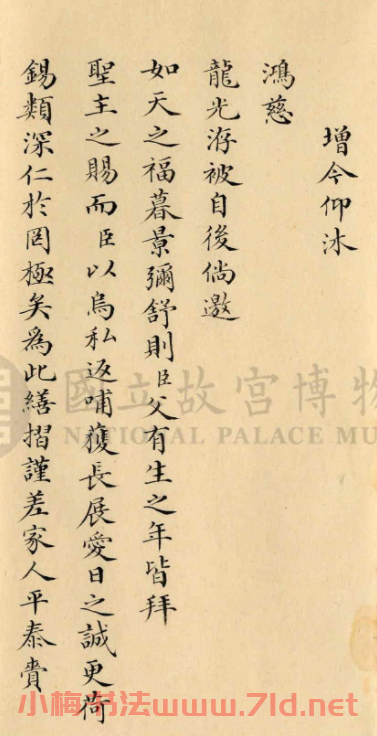 增今仰沐
鴻慈
龍光洊被自後倘邀
如天之福暮景彌舒則臣父有生之年皆拜
聖主之賜而臣以烏私返哺獲長展愛日之誠更荷
錫類深仁於罔極矣為此繕摺謹差家人平泰賫
國立故宮博物
NATIONAL PALACE MU
小梅书法www.7ld.net